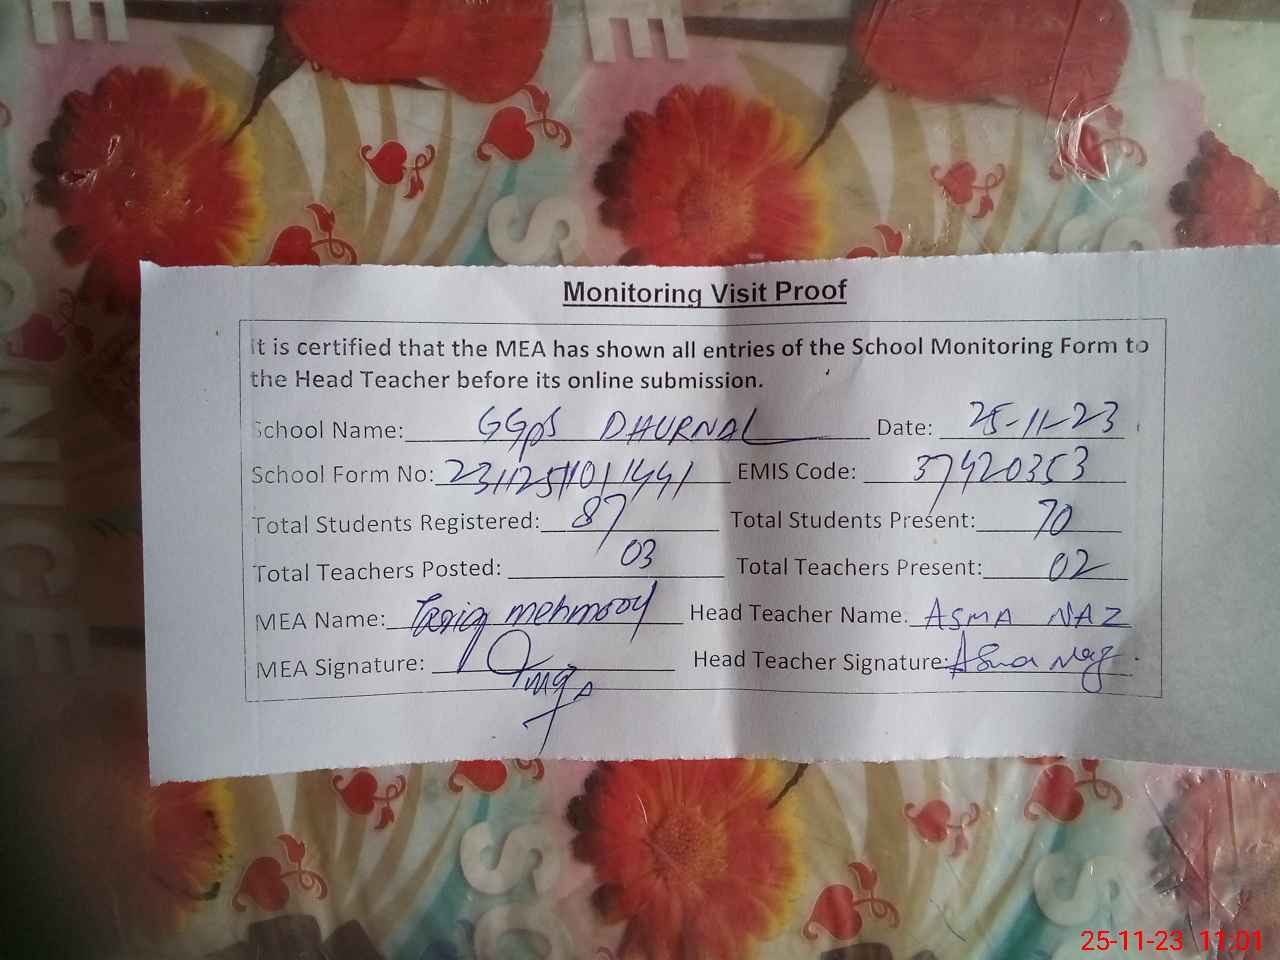 Monitoring Visit Proof
It is certified that the MEA has shown all entries of the School Monitoring Form to
the Head Teacher before its online submission.
School Name: GGpS DHURNAL Date: 25-11-23
School Form No: EMIS Code: 37420353
Total Students Registered: 87 Total Students Present: 70
Total Teachers Posted: 03 Total Teachers Present: 02
MEA Name: Tariq mehmood Head Teacher Name: ASMA NAZ
MEA Signature: Head Teacher Signature: Asma Naz
25-11-23 11:01